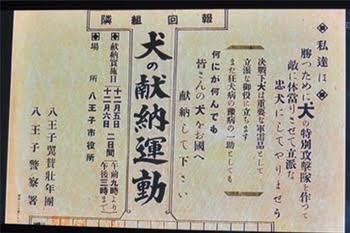 隣組回報
私達は
勝つために犬の特別攻撃隊を作って
敵に体當りさせて立派な
忠犬にしてやりませう
決戰下犬は重要な軍需品として
立派な御役に立ちます
また狂犬病の豫病の一助としても
何にが何んでも
皆さんの犬をお國へ
献納して下さい
犬の献納運動
献納實施日
十二月五日
十二月六日
二日間
午前九時より
午後三時まで
場所 八王子市役所
八王子翼賛壮年團
八王子警察署